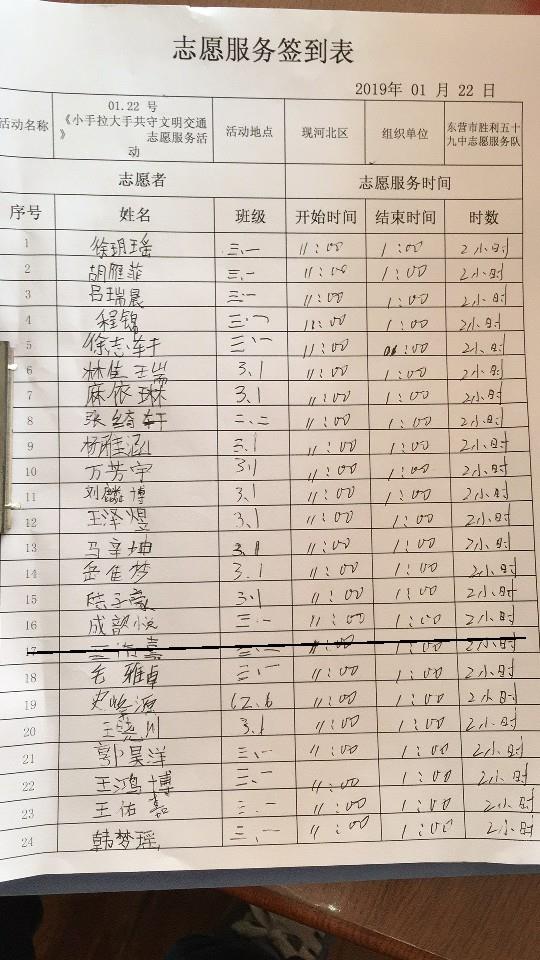 志愿服务签到表
2019年 01 月 22 日
活动名称 01.22 号《小手拉大手共守文明交通》志愿服务活动 活动地点 现河北区 组织单位 东营市胜利五十九中志愿服务队
志愿者 志愿服务时间
序号 姓名 班级 开始时间 结束时间 时数
1 徐玥瑶 三.一 11:00 1:00 2小时
2 胡雁菲 三.一 11:00 1:00 2小时
3 吕瑞晨 三.一 11:00 1:00 2小时
4 程锦 三.一 11:00 1:00 2小时
5 徐志轩 三.一 11:00 1:00 2小时
6 林佳瑞 3.1 11:00 1:00 2小时
7 麻依琳 3.1 11:00 1:00 2小时
8 张绮轩 二.二 11:00 1:00 2小时
9 杨雅涵 3.1 11:00 1:00 2小时
10 万芳宇 3.1 11:00 1:00 2小时
11 刘麟博 3.1 11:00 1:00 2小时
12 王泽煜 3.1 11:00 1:00 2小时
13 马辛坤 3.1 11:00 1:00 2小时
14 岳佳梦 3.1 11:00 1:00 2小时
15 陆子豪 3.1 11:00 1:00 2小时
16 成韵悦 三.一 11:00 1:00 2小时
17 11:00 1:00 2小时
18 毛雅卓 三.一 11:00 1:00 2小时
19 源 62.6 11:00 1:00 2小时
20 王晓川 3.1 11:00 1:00 2小时
21 郭昊洋 三.一 11:00 1:00 2小时
22 王鸿博 三.一 11:00 1:00 2小时
23 王佑嘉 三.一 11:00 1:00 2小时
24 韩梦瑶 三.一 11:00 1:00 2小时